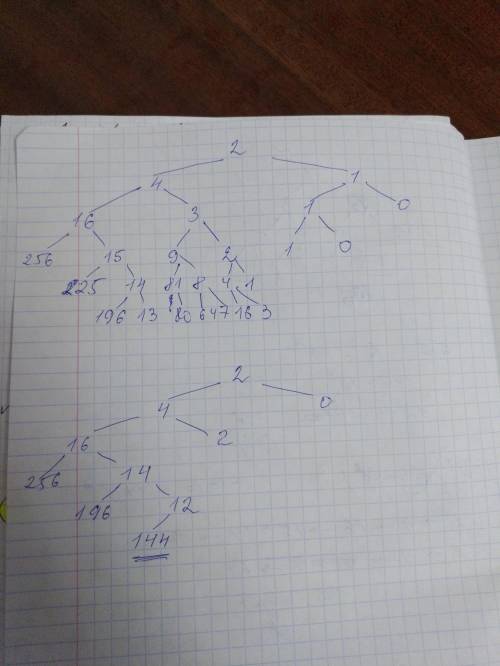 2
4 1
16 3 1 0
256 15 9 2 1 0
225 14 81 8 4 1
196 13 80 64 7 16 3
2
4 0
16 2
256 14
196 12
144